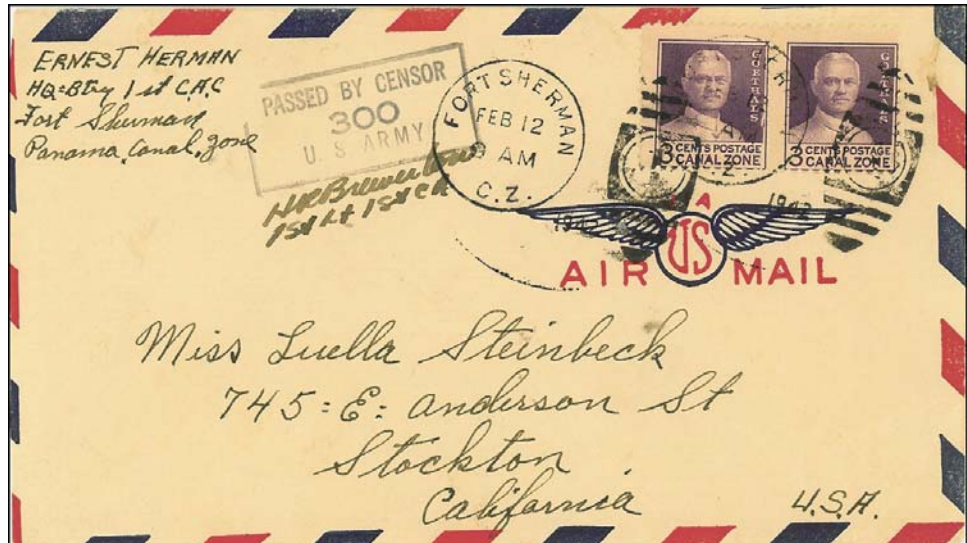 ERNEST HERMAN
HQ=Btry 1st C.A.C
Fort Sherman
Panama Canal, Zone
PASSED BY CENSOR
300
U. S ARMY
1st Lt 1st CA
FORT SHERMAN
FEB 12
9 AM
C.Z.
1942
GOETHALS
3 CENTS POSTAGE
CANAL ZONE
GOETHALS
3 CENTS POSTAGE
CANAL ZONE
1942
US
AIR MAIL
Miss Luella Steinbeck
745=E= Anderson St
Stockton
California
U.S.A.